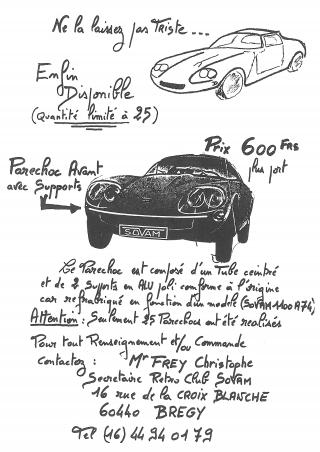 Ne la laissez pas Triste ...
Enfin
Disponible
(Quantité limité à 25)
Prix 600 Frs
plus port
Parechoc Avant
avec Supports
SOVAM
Le Parechoc est composé d'un Tube ceintré
et de 2 supports en ALU poli conforme à l'origine
car refabriqué en fonction d'un modèle (SOVAM 1100 A 74)
Attention : Seulement 25 Parechocs ont été realisés
Pour tout Renseignement et/ou Commande
contactez : Mr FREY Christophe
Secretaire Retro Club SOVAM
16 rue de la CROIX BLANCHE
60440 BREGY
Tel (16) 44 94 01 79